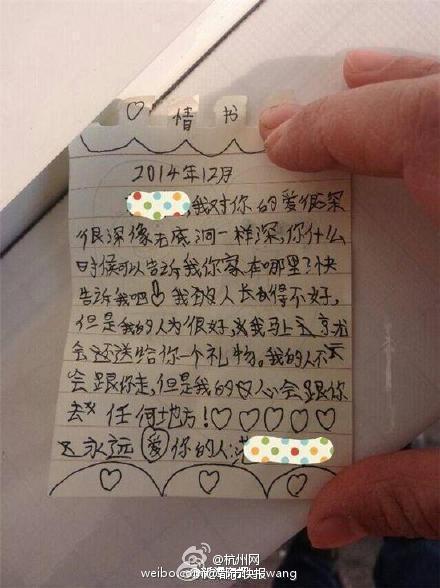 ♡情书
2014年12月
,我对你的爱很深
很深像无底洞一样深,你什么
时候可以告诉我你家在哪里?快
告诉我吧!我的人长得不好,
但是我的人为很好,我马上
会还送给你一个礼物。我的人不
会跟你走,但是我的心会跟你
去任何地方!♡♡♡♡♡
永远爱你的人:
杭州网
weibo.com/
@都市快报
wang